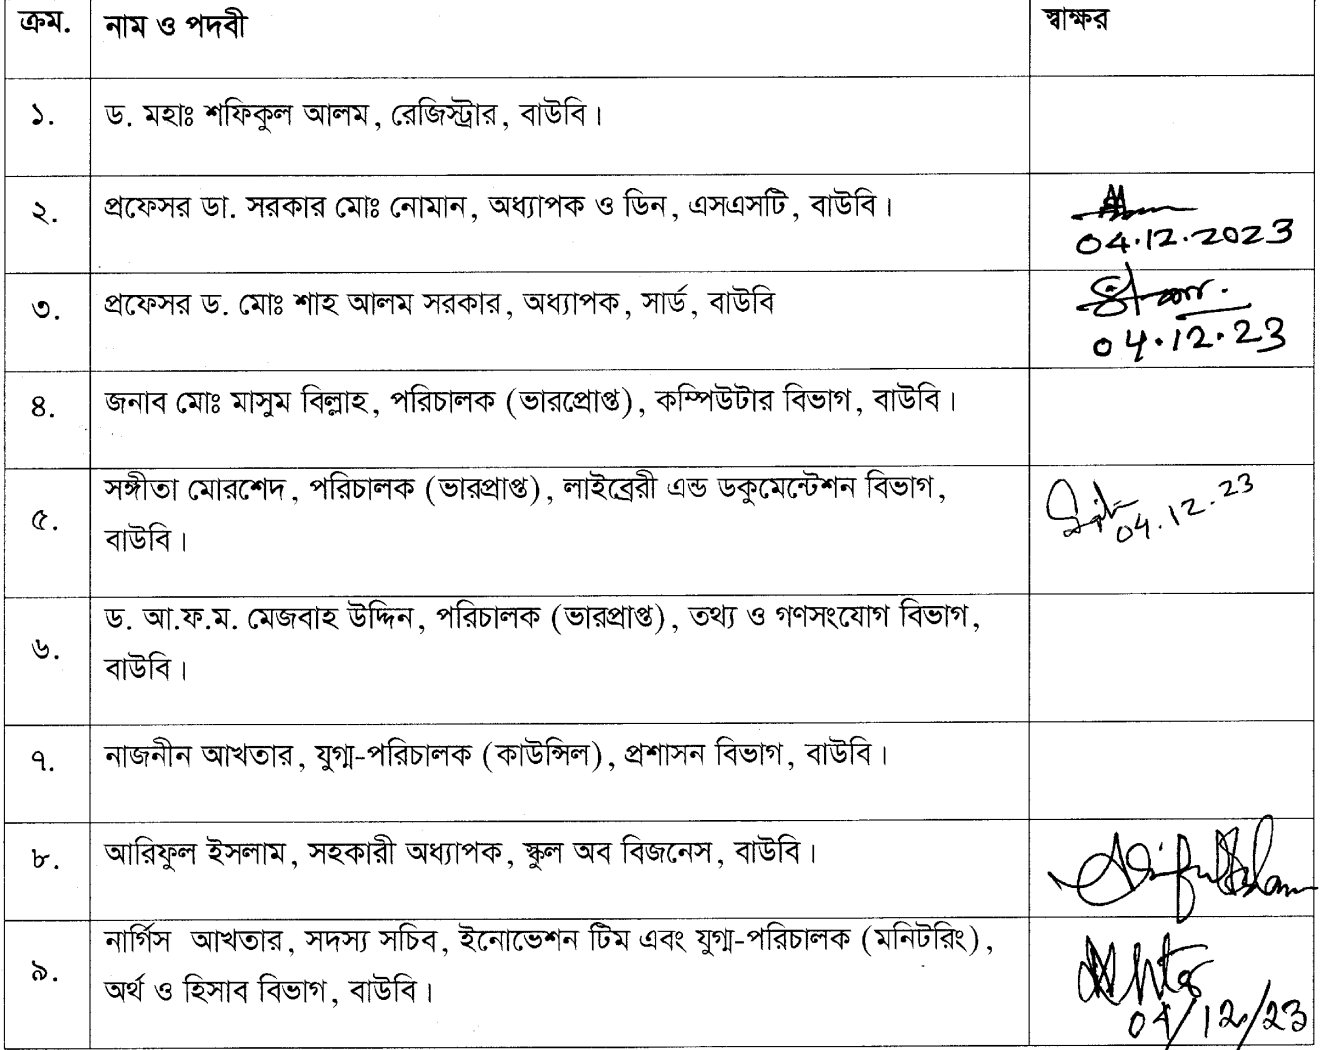 ক্রম. নাম ও পদবী স্বাক্ষর
১. ড. মহাঃ শফিকুল আলম, রেজিস্ট্রার, বাউবি।
২. প্রফেসর ডা. সরকার মোঃ নোমান, অধ্যাপক ও ডিন, এসএসটি, বাউবি।
04.12.2023
৩. প্রফেসর ড. মোঃ শাহ আলম সরকার, অধ্যাপক, সার্ড, বাউবি
04.12.23
৪. জনাব মোঃ মাসুম বিল্লাহ, পরিচালক (ভারপ্রোপ্ত), কম্পিউটার বিভাগ, বাউবি।
সঙ্গীতা মোরশেদ, পরিচালক (ভারপ্রাপ্ত), লাইব্রেরী এন্ড ডকুমেন্টেশন বিভাগ,
04.12.23
৫. বাউবি।
ড. আ.ফ.ম. মেজবাহ উদ্দিন, পরিচালক (ভারপ্রাপ্ত), তথ্য ও গণসংযোগ বিভাগ,
৬. বাউবি।
৭. নাজনীন আখতার, যুগ্ম-পরিচালক (কাউন্সিল), প্রশাসন বিভাগ, বাউবি।
৮. আরিফুল ইসলাম, সহকারী অধ্যাপক, স্কুল অব বিজনেস, বাউবি।
নার্গিস আখতার, সদস্য সচিব, ইনোভেশন টিম এবং যুগ্ম-পরিচালক (মনিটরিং),
৯. অর্থ ও হিসাব বিভাগ, বাউবি।
04/12/23